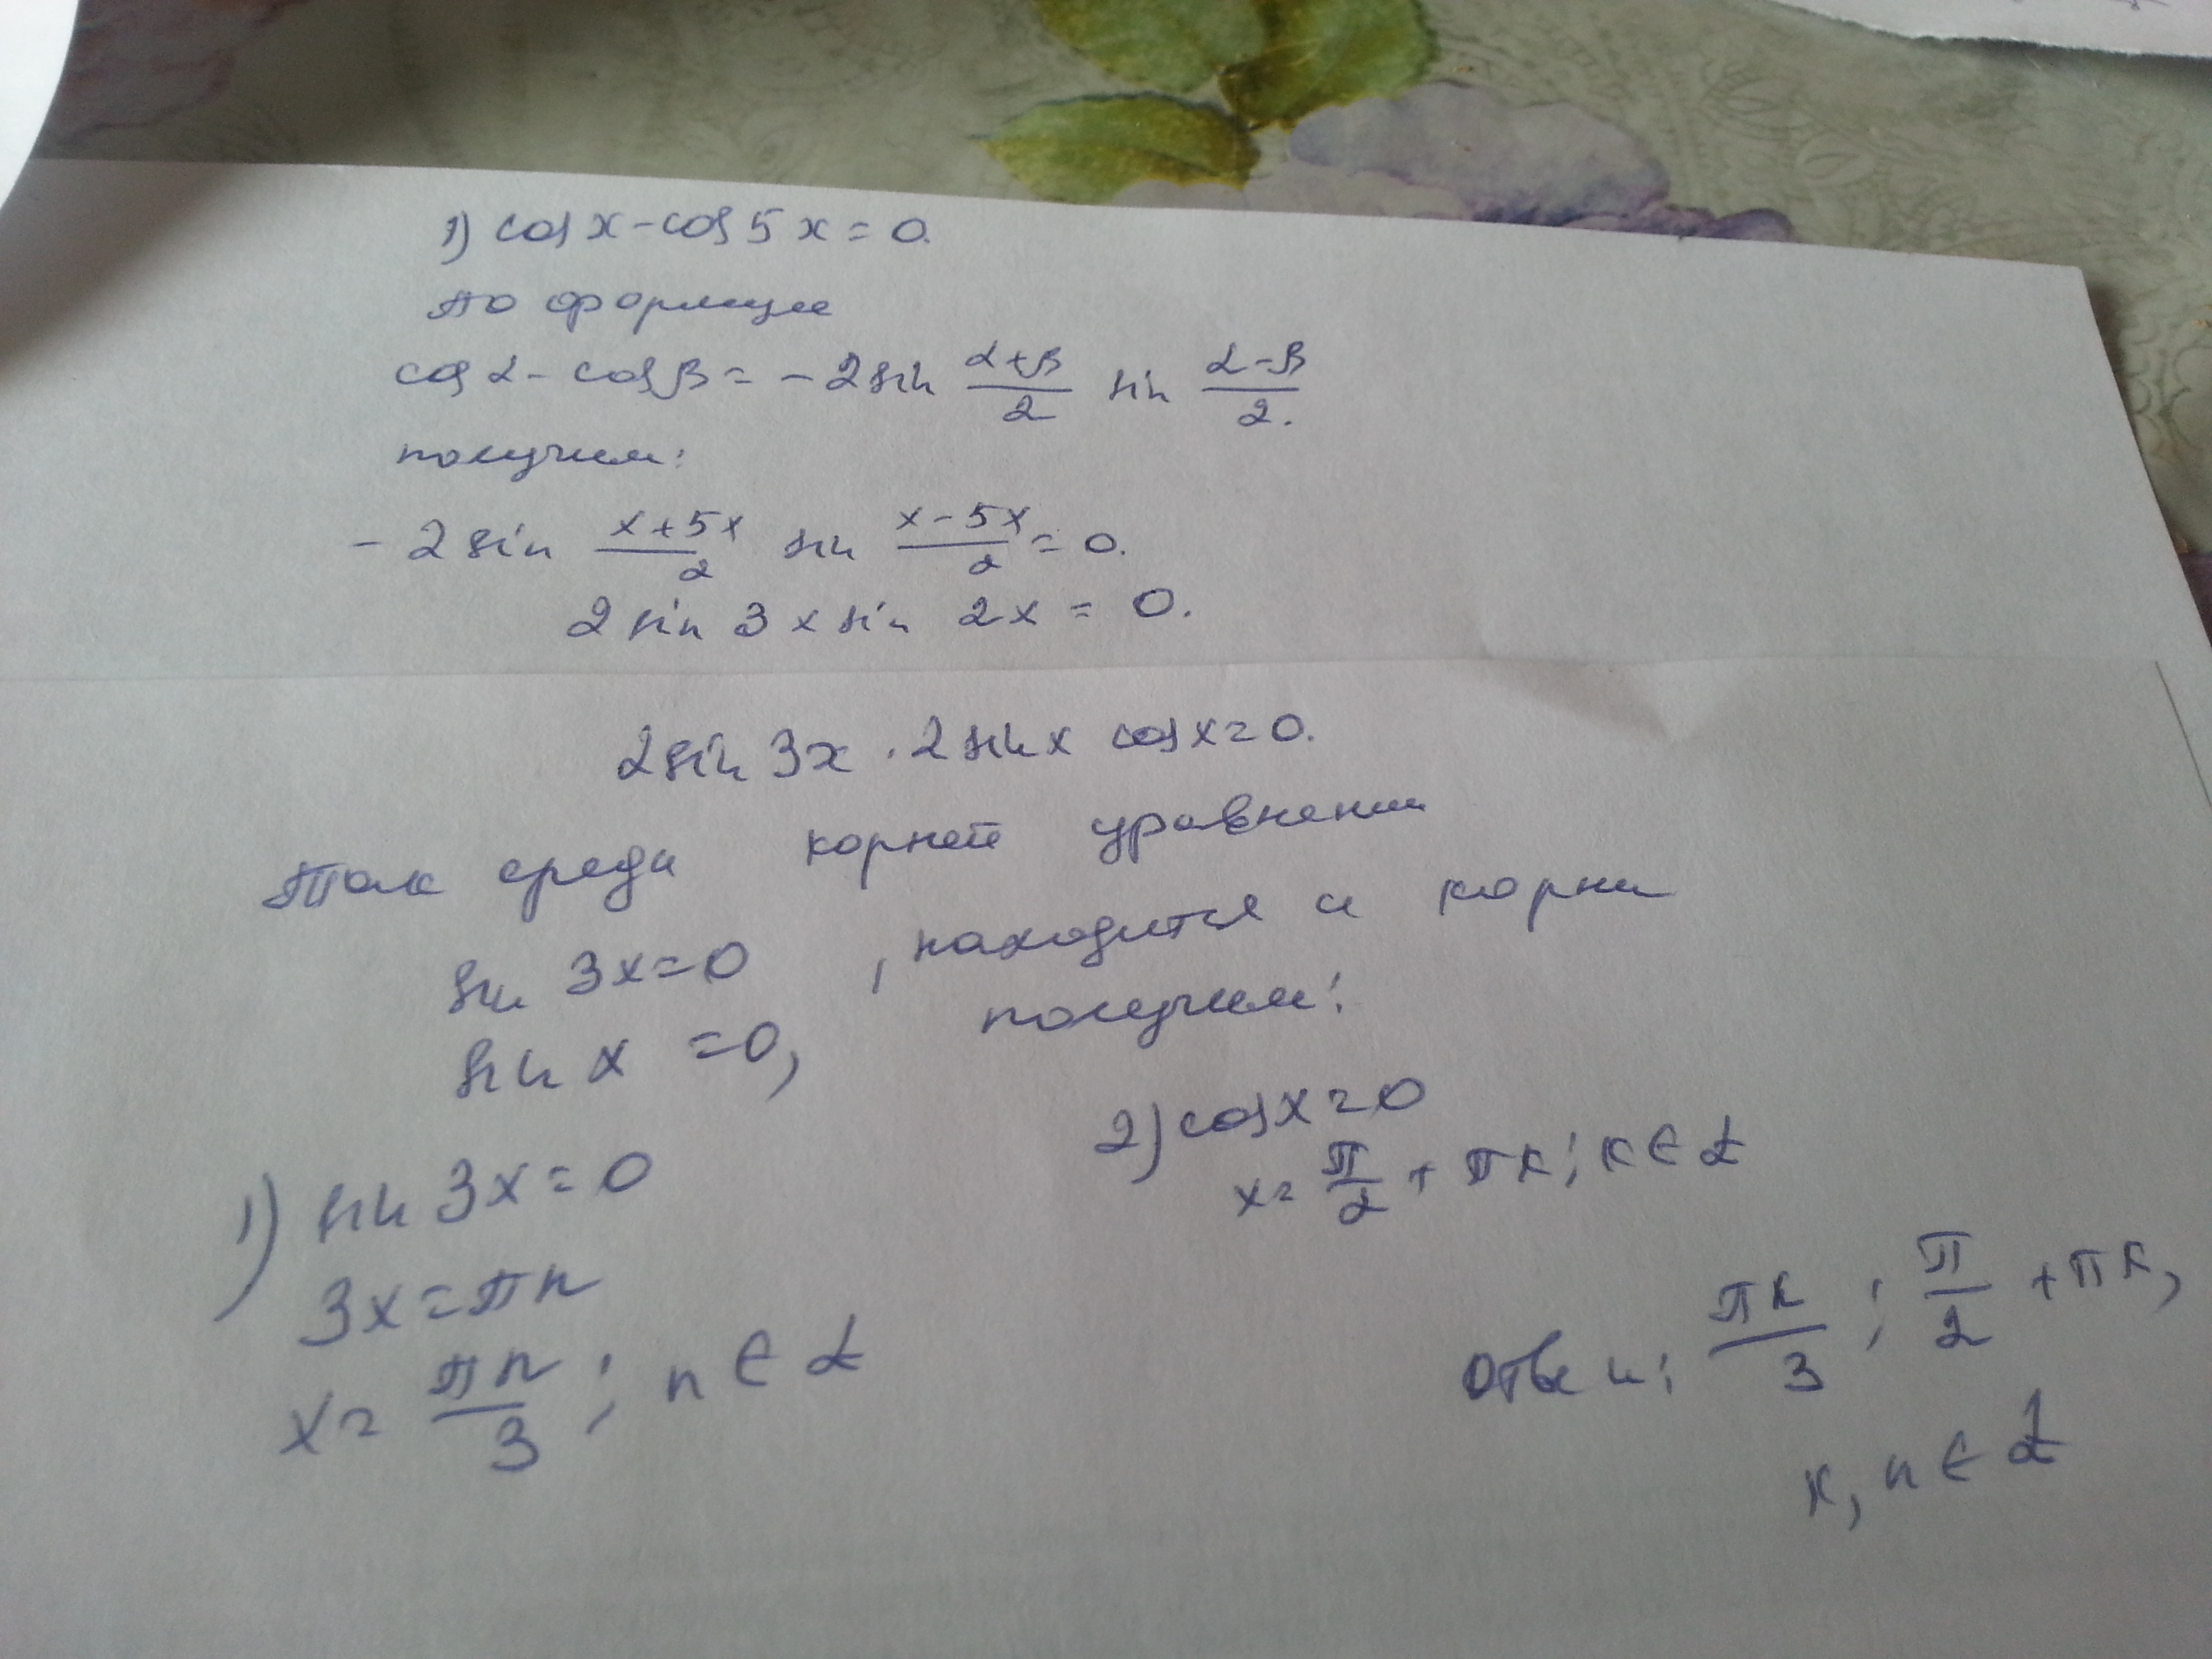 1) cos x - cos 5x = 0.
по формуле
cos α - cos β = - 2 sin (α+β)/2 sin (α-β)/2.
получим:
- 2 sin (x+5x)/2 sin (x-5x)/2 = 0.
2 sin 3x sin 2x = 0.
2 sin 3x · 2 sin x cos x = 0.
Так среди корней уравнении
sin 3x = 0 , находится и корни
sin x = 0, получим:
1) sin 3x = 0
3x = πn
x = πn/3 ; n ∈ Z
2) cos x = 0
x = π/2 + πk ; k ∈ Z
Ответ: πk/3 ; π/2 + πk,
k, n ∈ Z